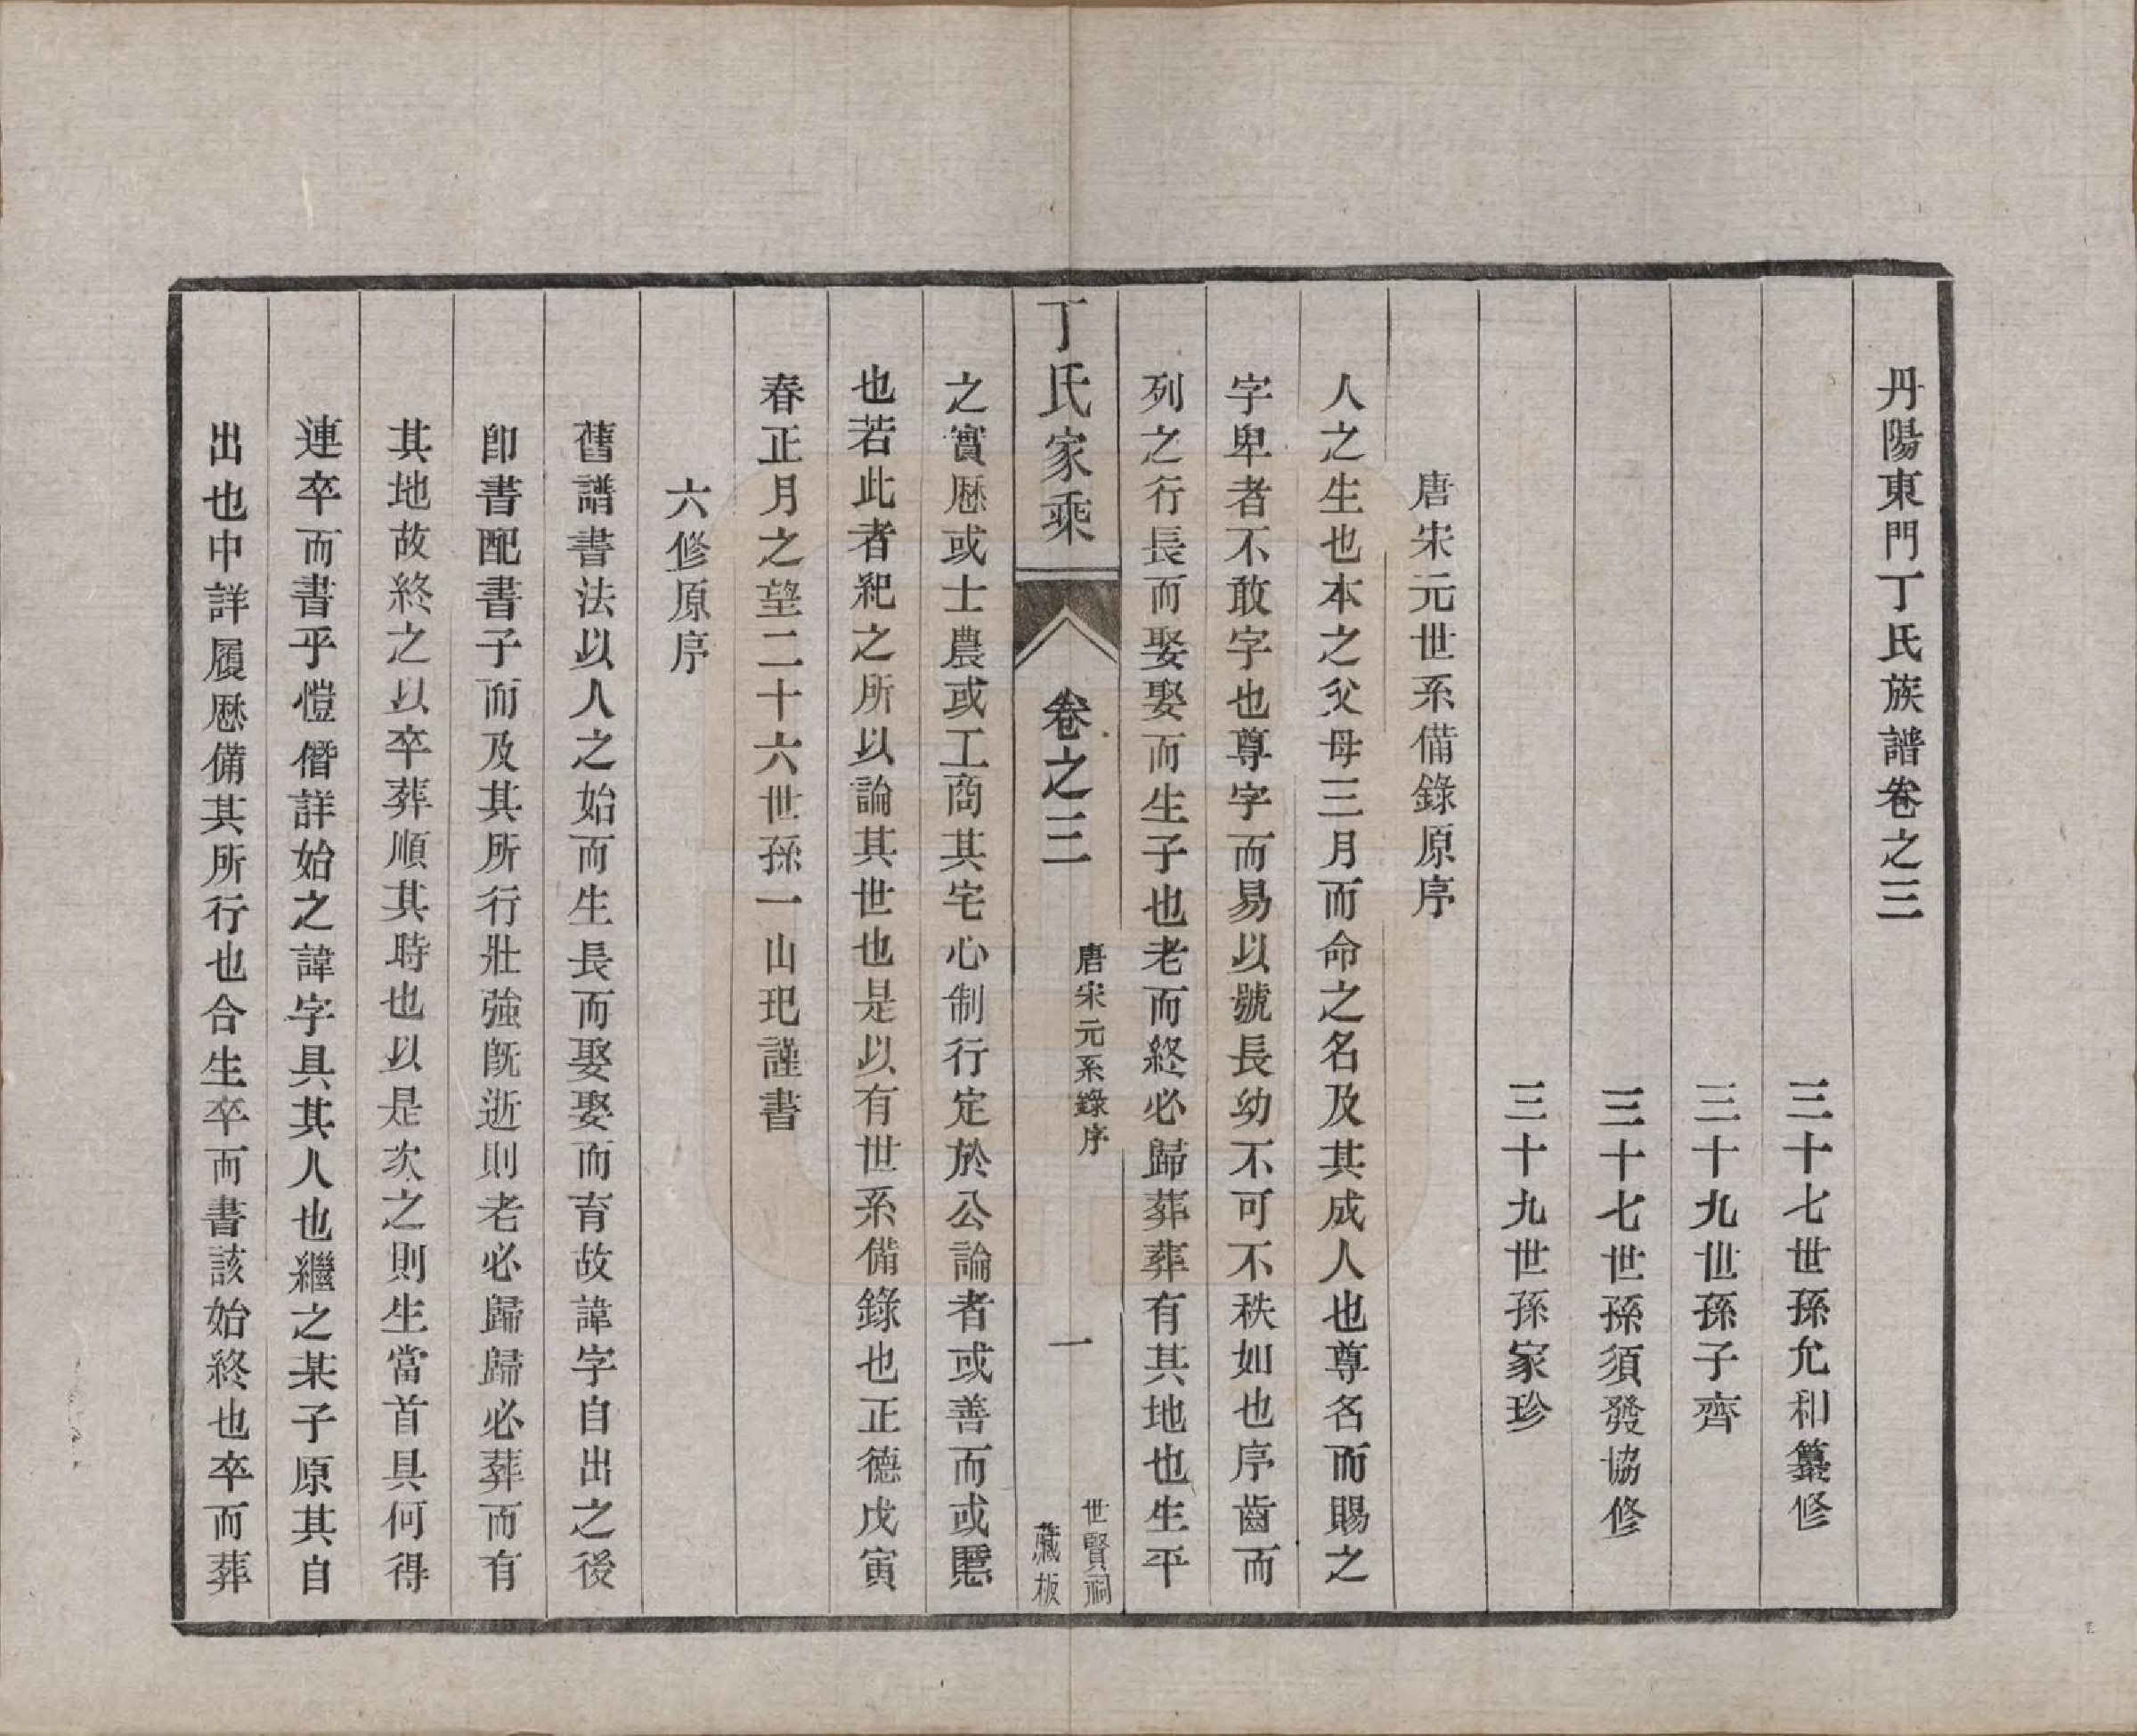 丹陽東門丁氏族譜卷之三
三十七世孫允和纂修
三十九世孫子齊
三十七世孫須發協修
三十九世孫家珍
唐宋元世系備錄原序
人之生也本之父母三月而命之名及其成人也尊名而賜之
字卑者不敢字也尊字而易以號長幼不可不秩如也序齒而
列之行長而娶娶而生子也老而終必歸葬葬有其地也生平
丁氏家乘
卷之三
唐宋元系錄序
一
世賢祠
藏板
之實厯或士農或工商其宅心制行定於公論者或善而或慝
也若此者紀之所以論其世也是以有世系備錄也正德戊寅
春正月之望二十六世孫一山玘謹書
六修原序
舊譜書法以人之始而生長而娶娶而育故諱字自出之後
卽書配書子而及其所行壯強旣逝則老必歸歸必葬而有
其地故終之以卒葬順其時也以是次之則生當首具何得
連卒而書乎愷僭詳始之諱字具其人也繼之某子原其自
出也中詳履厯備其所行也合生卒而書該始終也卒而葬